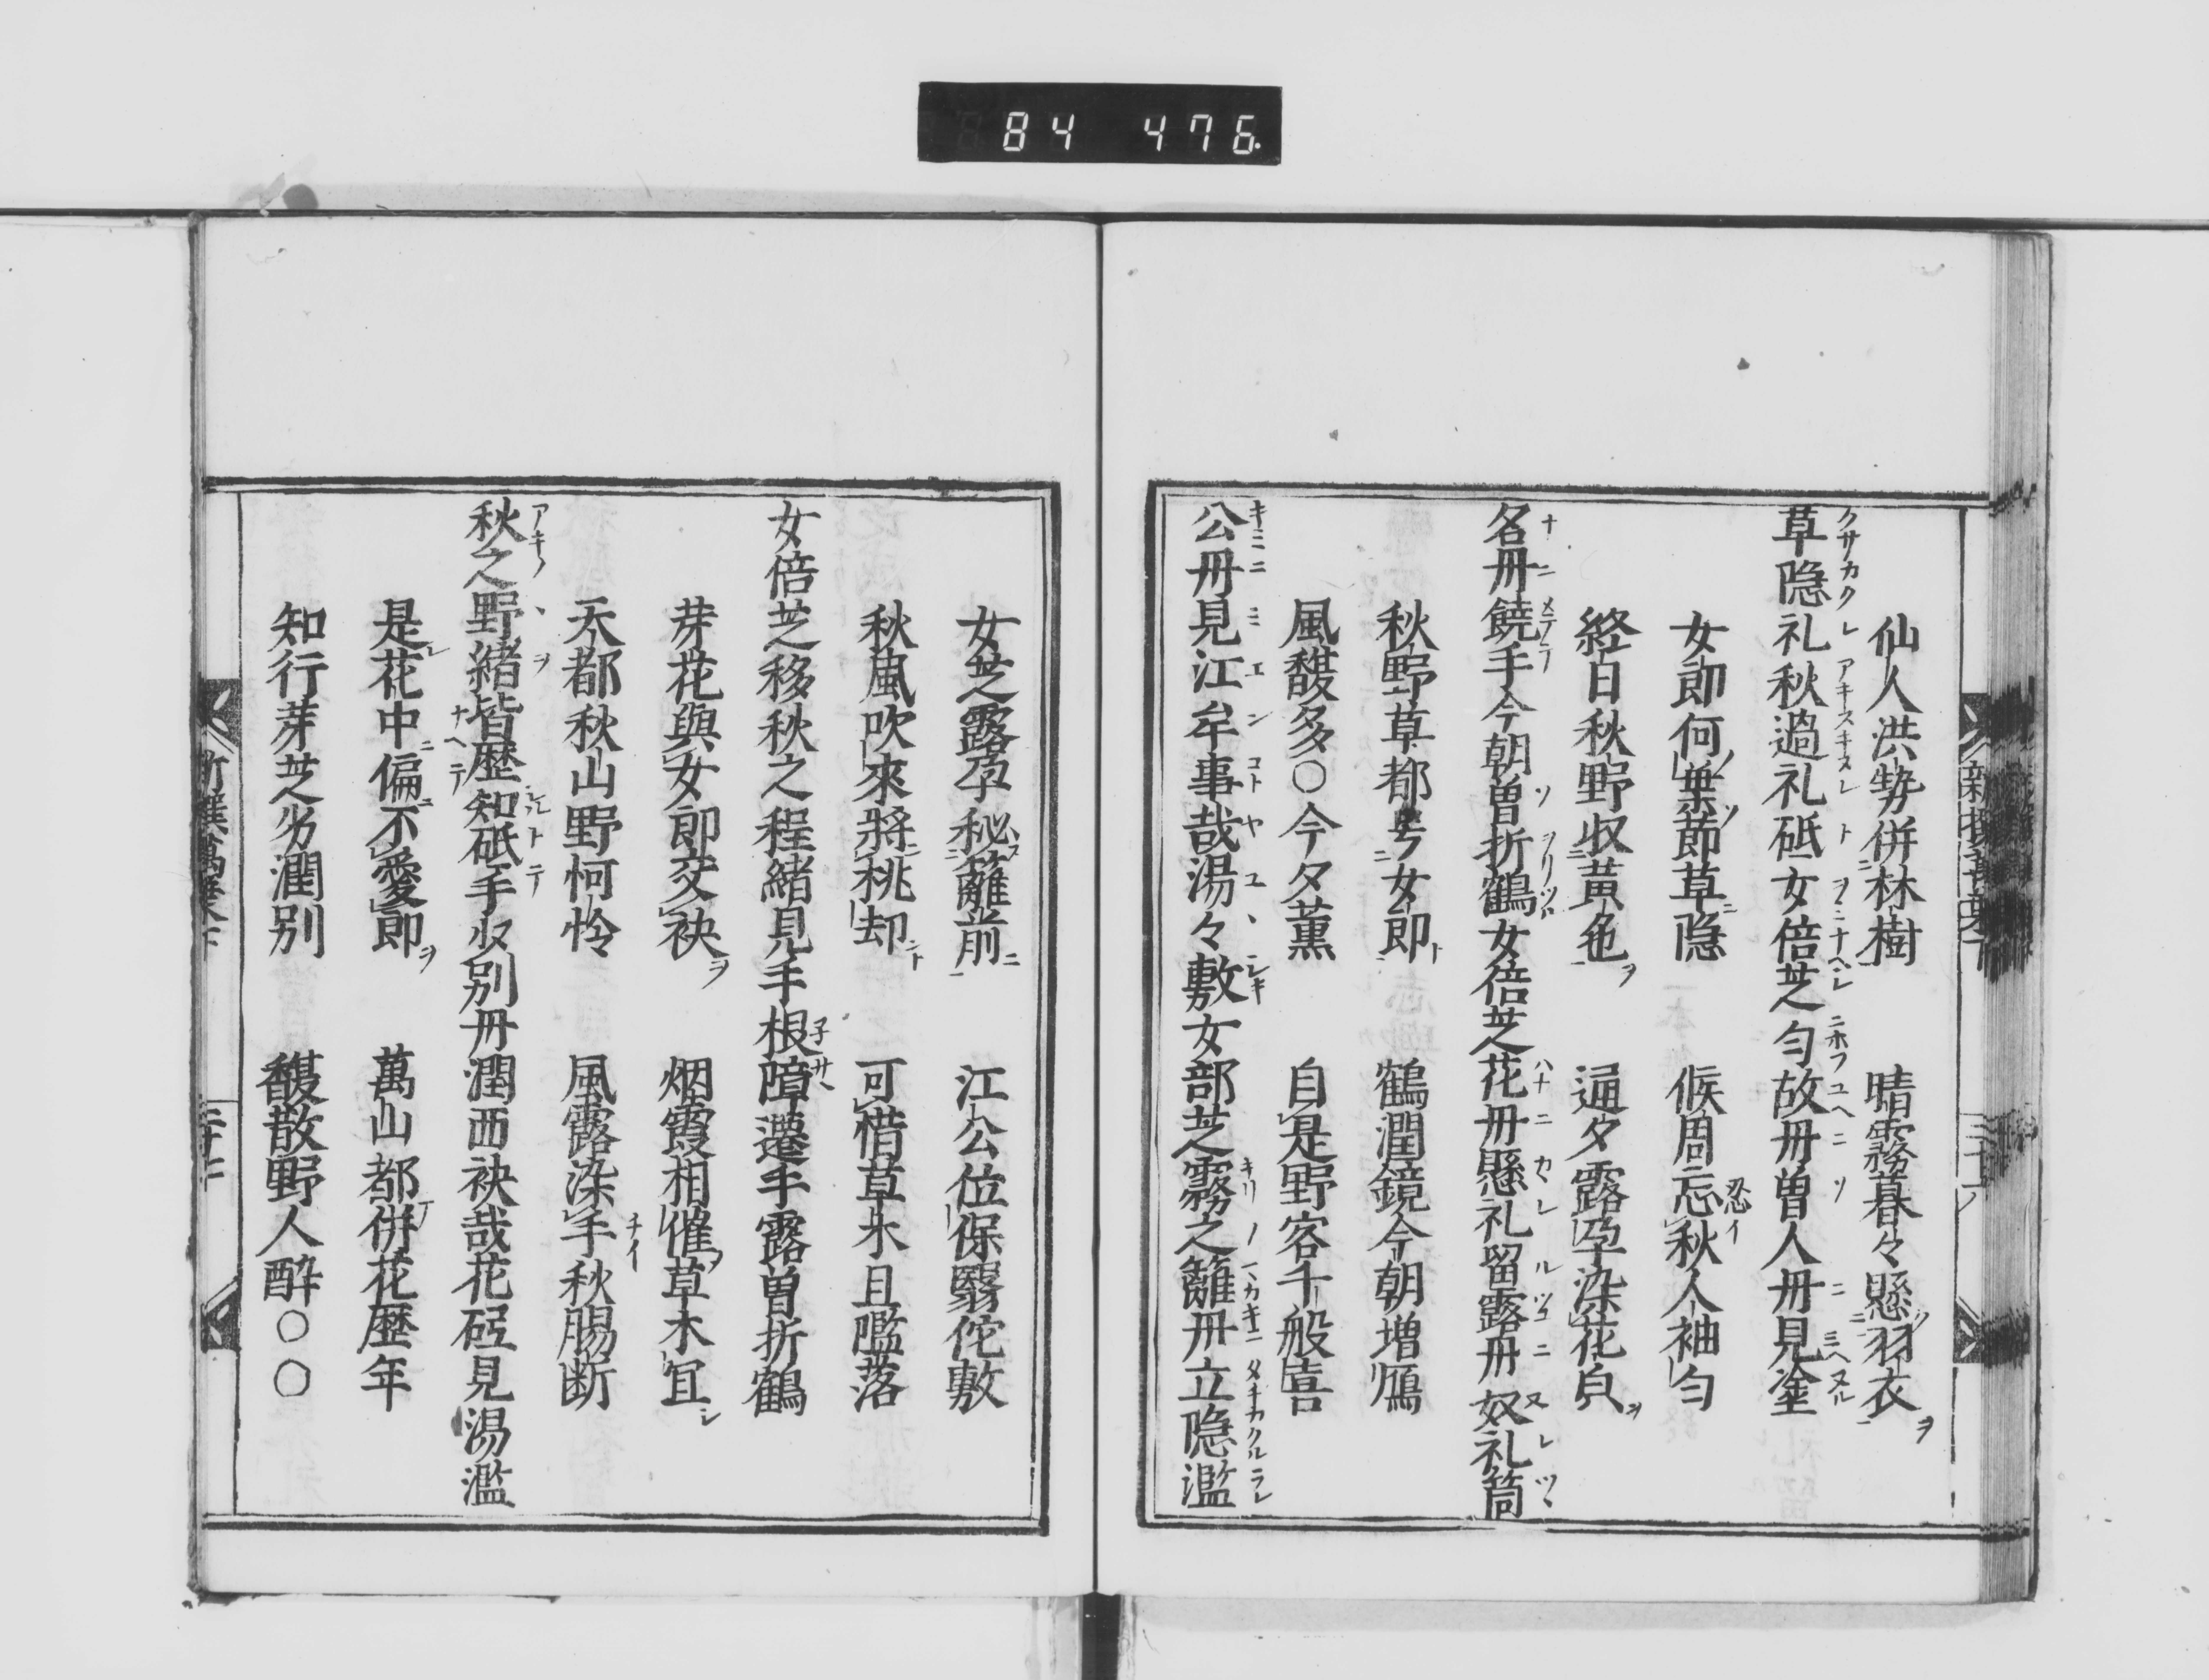 84 476
仙人洪勢併林樹 晴霧暮々懸羽衣
草隠礼秋過礼砥女倍芝匂故丹曽人丹見塗
女郎何葉節草隠 候周忘秋人袖匂
経日秋野収黄色 通夕露孕染花皃
名丹饒手今朝曽折鶴女倍芝花丹懸礼留露丹奴礼筒
秋野草都号女郎 鶴潤鏡今朝増鴈
風馥多〇今夕薫 自是野客千般喜
公丹見江牟事哉湯々敷女部芝霧之籬丹立隠濫
女芝露孕秘籬前 江公位保翳佗敷
秋風吹來將桃却 可惜草木且濫落
女倍芝移秋之程緒見手根障遷手露曽折鶴
芽花與女郎交袂 烟霞相催草木冝
天都秋山野怜怜 風露染手秋腸断
秋之野緒皆歴知砥手収別丹潤西袂哉花砥見湯濫
是花中偏不愛郎 萬山都併花歴年
知行芽芝劣潤別 馥散野人酔〇〇